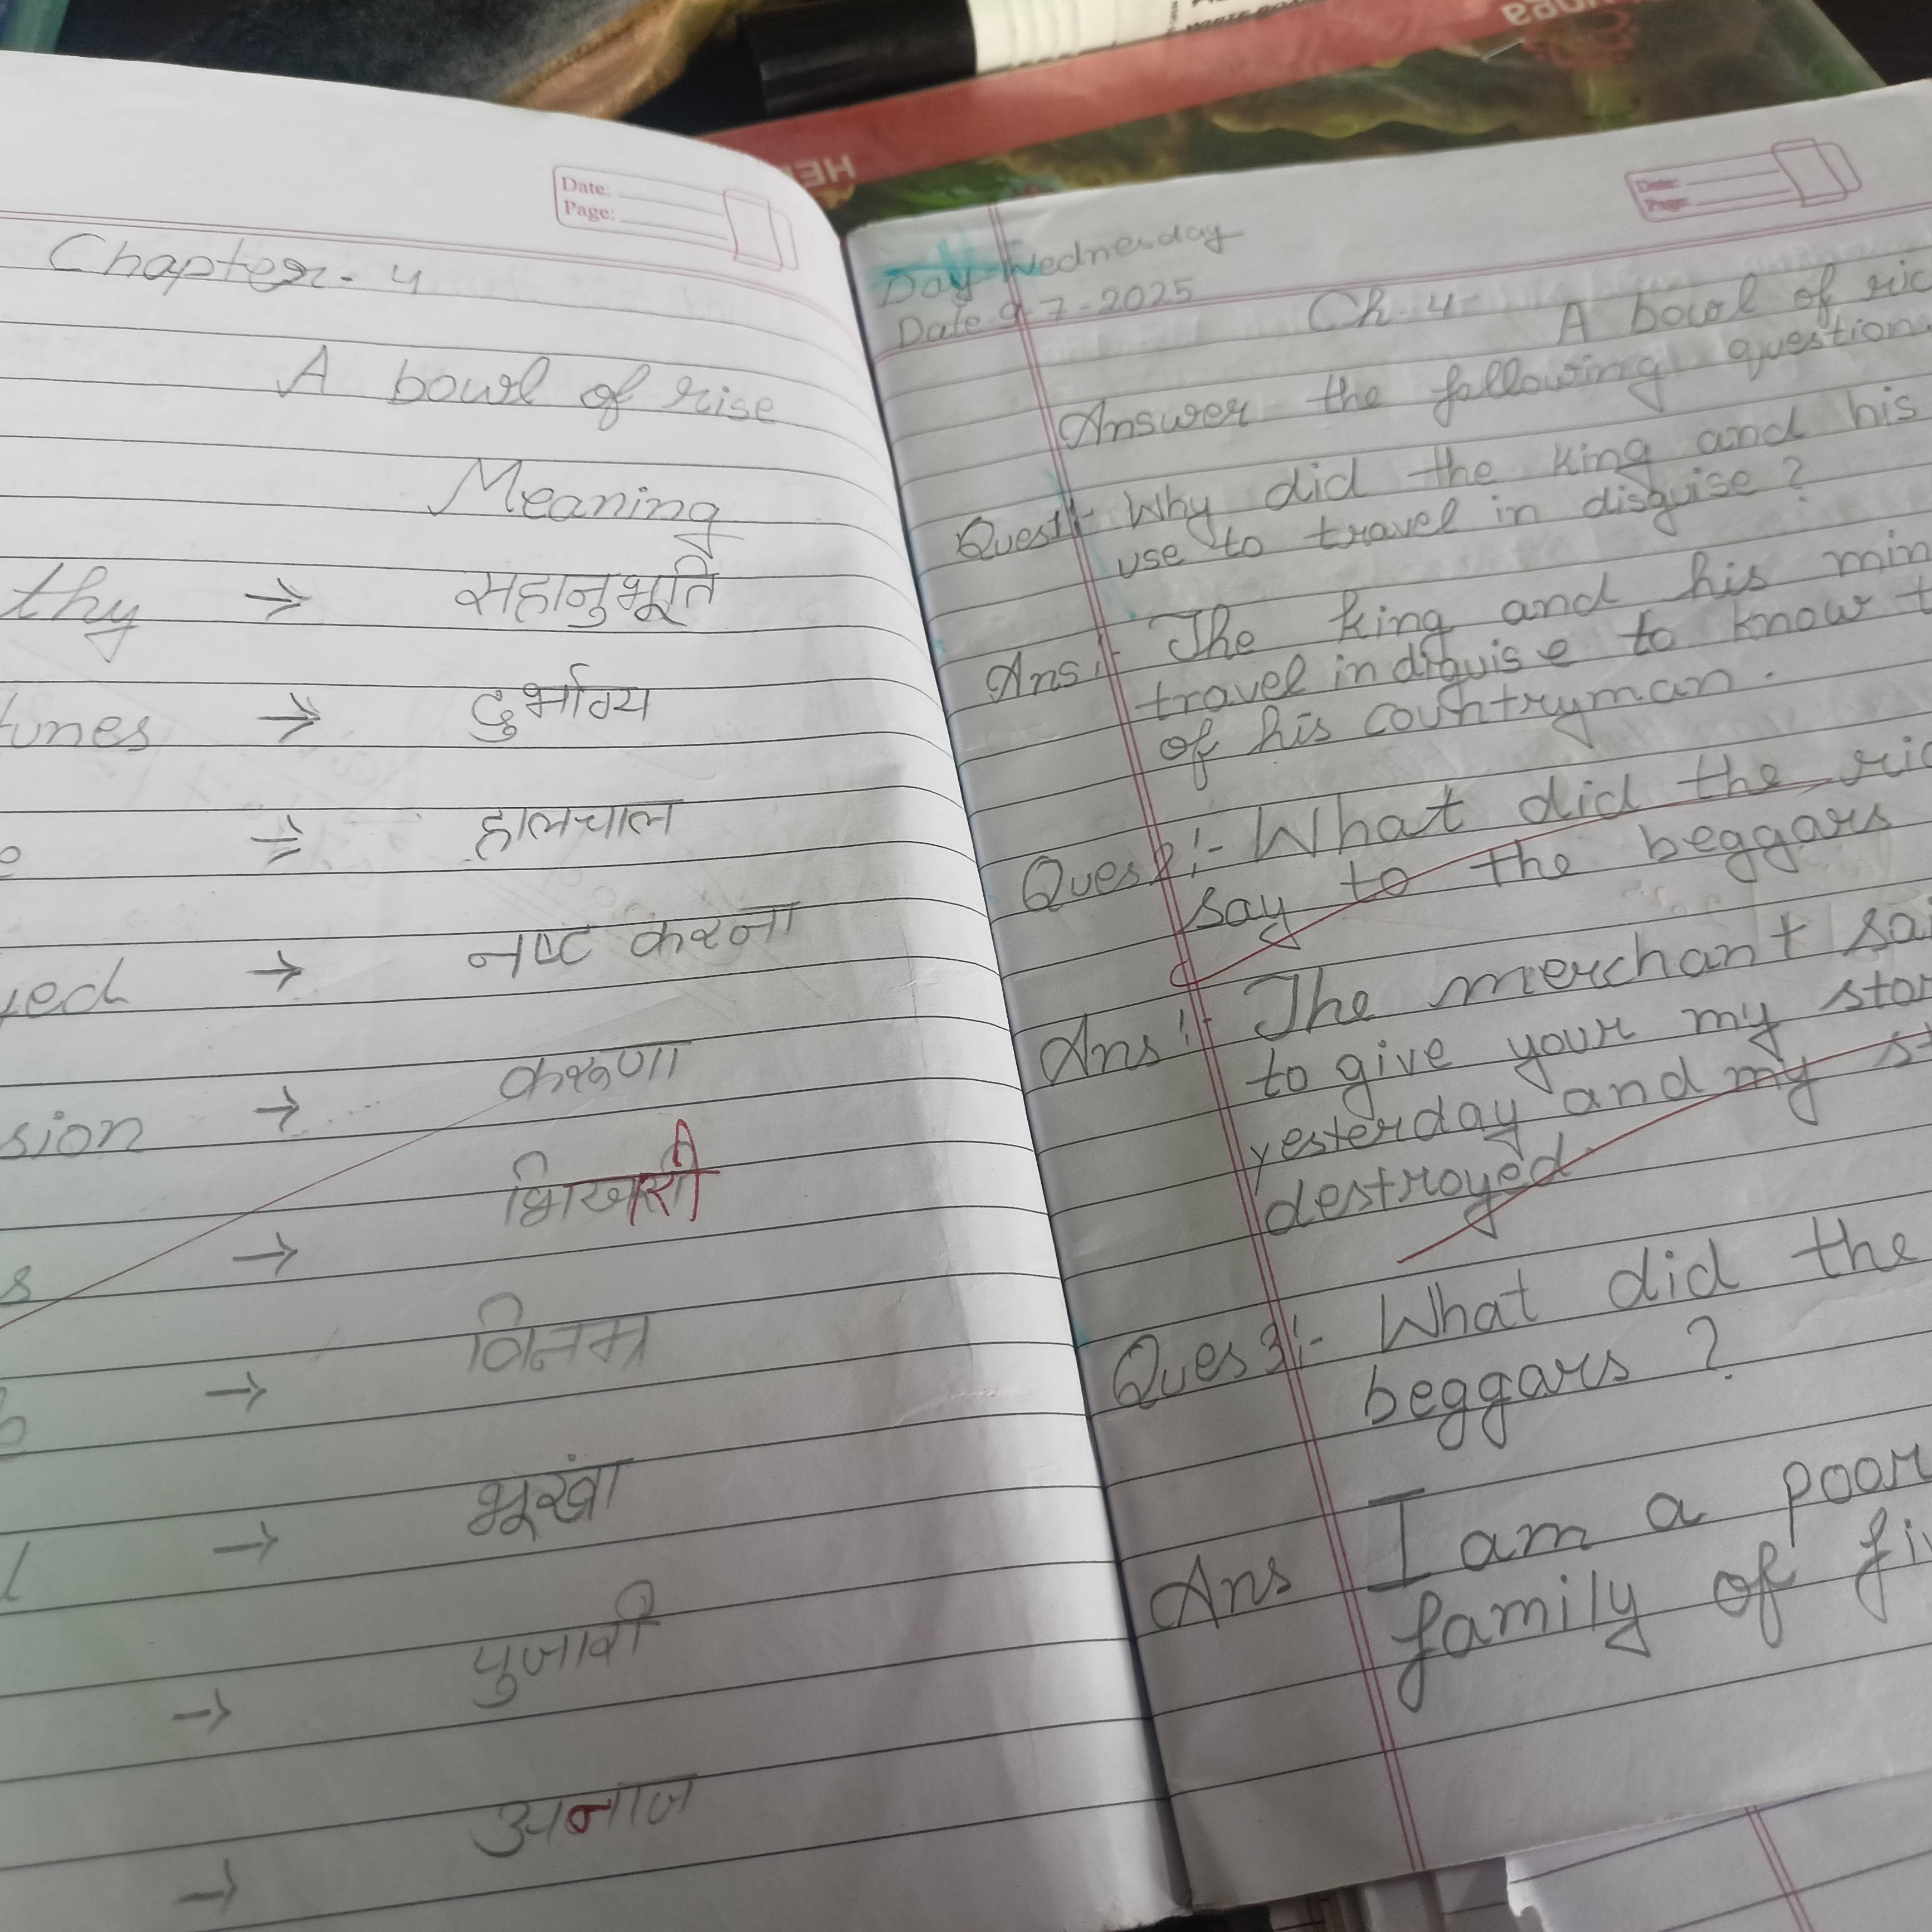 HE
Date:
Page:
Chapter - 4
A bowl of rise
Meaning
thy → सहानुभूति
tunes → दुर्भाग्य
e → हालचाल
yed → नष्ट करना
sion → करुणा
s → भिखारी
→ विनम्र
l → भूखा
→ पुजारी
→ अनाज
Date:
Page:
Day Wednesday
Date 9-7-2025
Ch. 4 A bowl of ric
Answer the following question
Ques1:- Why did the king and his
use to travel in disguise ?
Ans:- The king and his min
travel in diguise to know t
of his countryman.
Ques2:- What did the ric
say to the beggars
Ans:- The merchant sai
to give your my stor
yesterday and my st
destroyed
Ques3:- What did the
beggars ?
Ans I am a poor
family of fiv